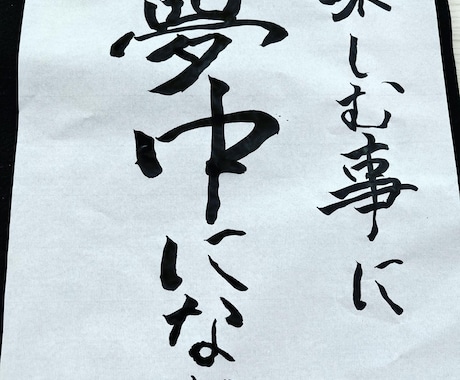 楽しむ事に
夢中にな